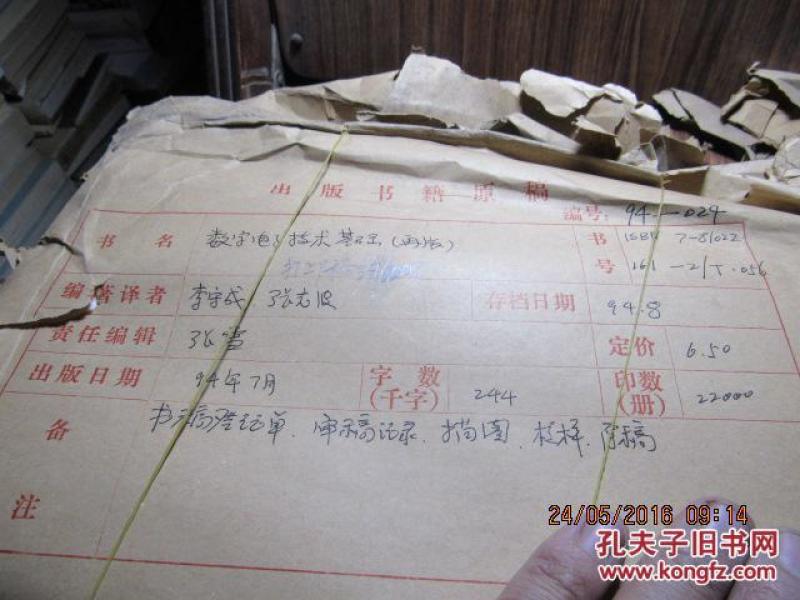 出版书籍原稿
编号: 94-029
书名 数字电子技术基础(再版) 书号 ISBN 7-81022
161-2/T·056
编著译者 李守成、 存档日期 94.8
责任编辑 张雪 定价 6.50
出版日期 94年7月 字数(千字) 244 印数(册) 22000
备注 书稿登记单、审稿记录、描图、校样、原稿
24/05/2016 09:14
孔夫子旧书网
www.kongfz.com